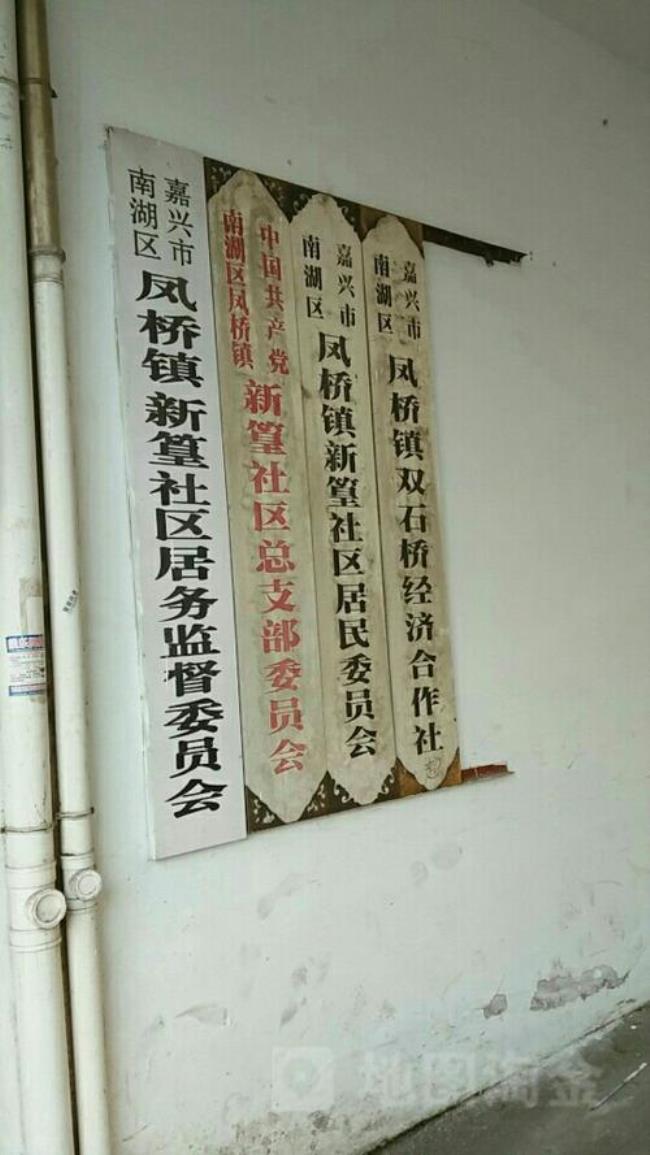 嘉兴市
南湖区
凤桥镇新篁社区居务监督委员会
中国共产党
南湖区凤桥镇
新篁社区总支部委员会
嘉兴市
南湖区
凤桥镇新篁社区居民委员会
嘉兴市
南湖区
凤桥镇双石桥经济合作社
地图淘金